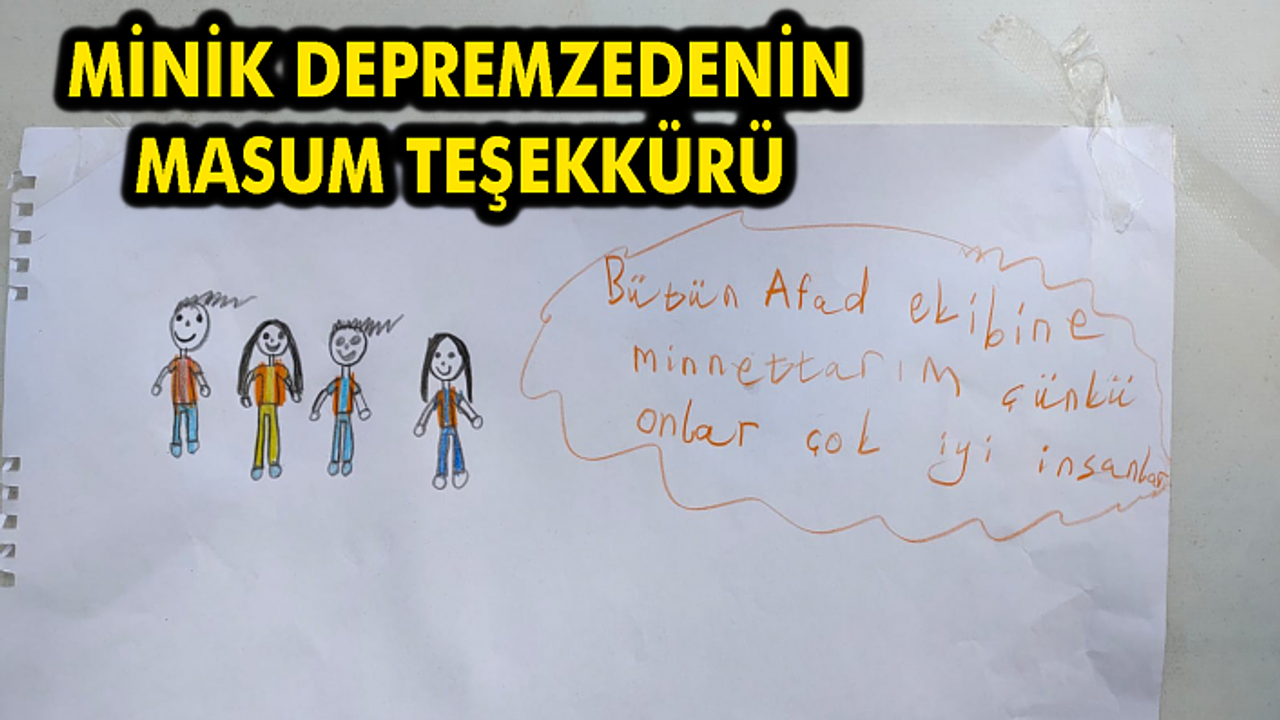 MİNİK DEPREMZEDENİN
MASUM TEŞEKKÜRÜ
Bütün Afad ekibine
minnettarım çünkü
onlar çok iyi insanlar